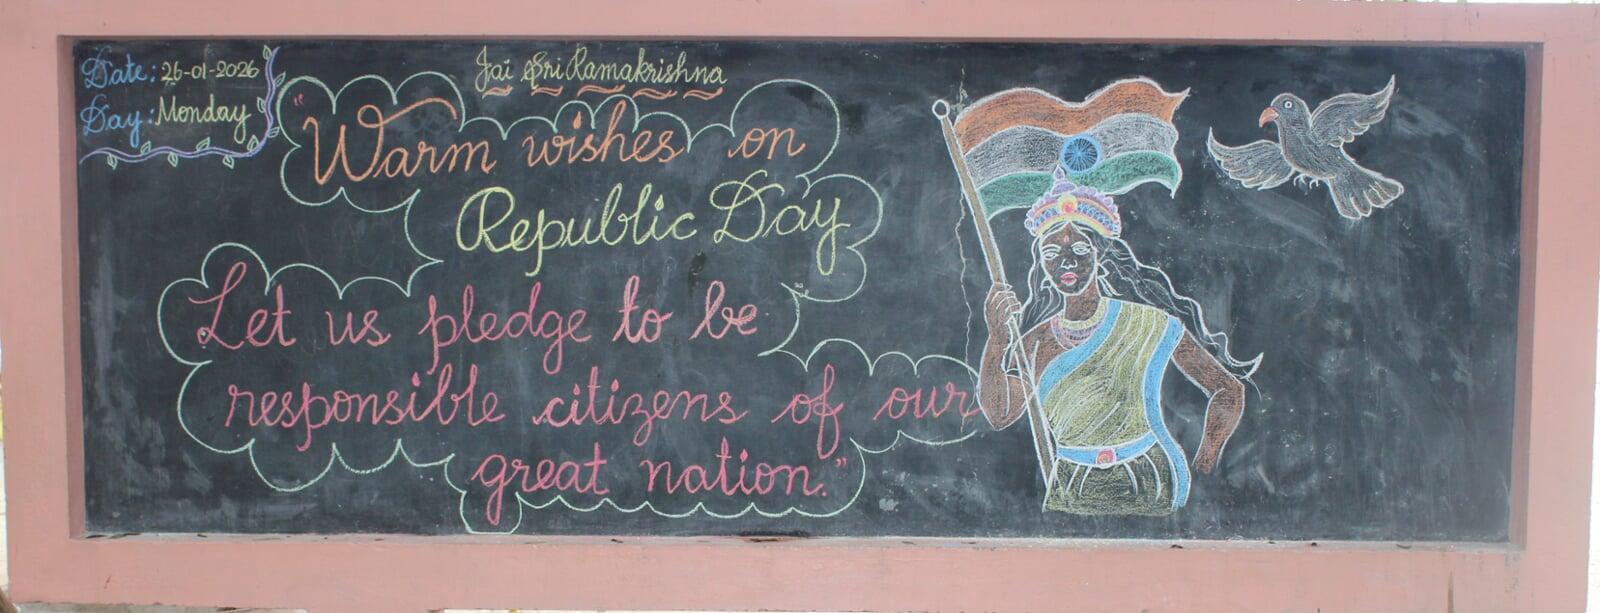 Date: 26-01-2026
Day: Monday
Jai Sri Ramakrishna
"Warm wishes on
Republic Day
Let us pledge to be
responsible citizens of our
great nation."